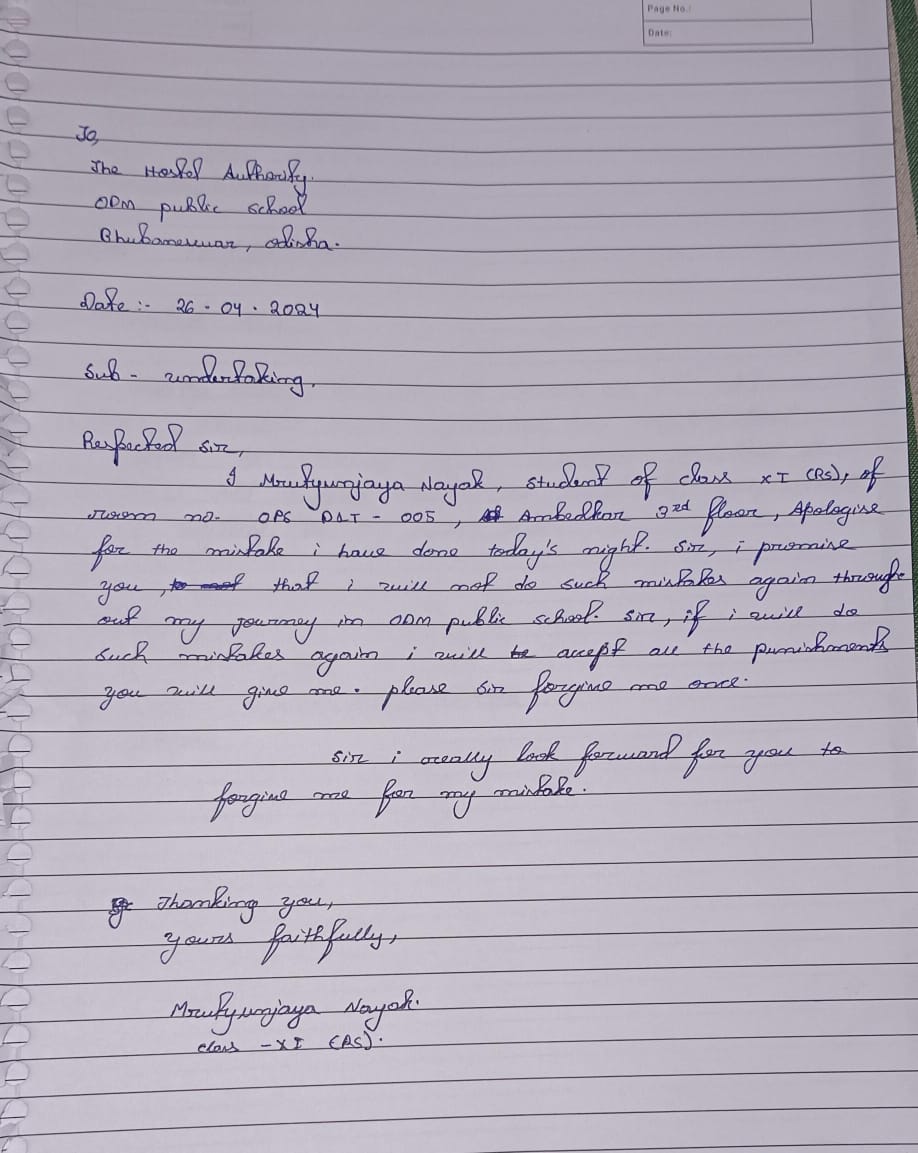 Page No.:
Date:
To,
The Hostel Authority.
ODM public school
Bhubaneswar, Odisha.
Date :- 26 - 04 . 2024
Sub - undertaking.
Respected sir,
I Mrutyunjaya Nayak, student of class XI (RS), of
room no. OPS DLT - 005, Ambedkar 3rd floor, Apologise
for the mistake i have done today's night. Sir, i promise
you, that i will not do such mistakes again through
out my journey in ODM public school. Sir, if i will do
such mistakes again i will accept all the punishments
you will give me. please sir forgive me once.
Sir i really look forward for you to
forgive me for my mistake.
Thanking you,
yours faithfully,
Mrutyunjaya Nayak.
class - XI (RS).